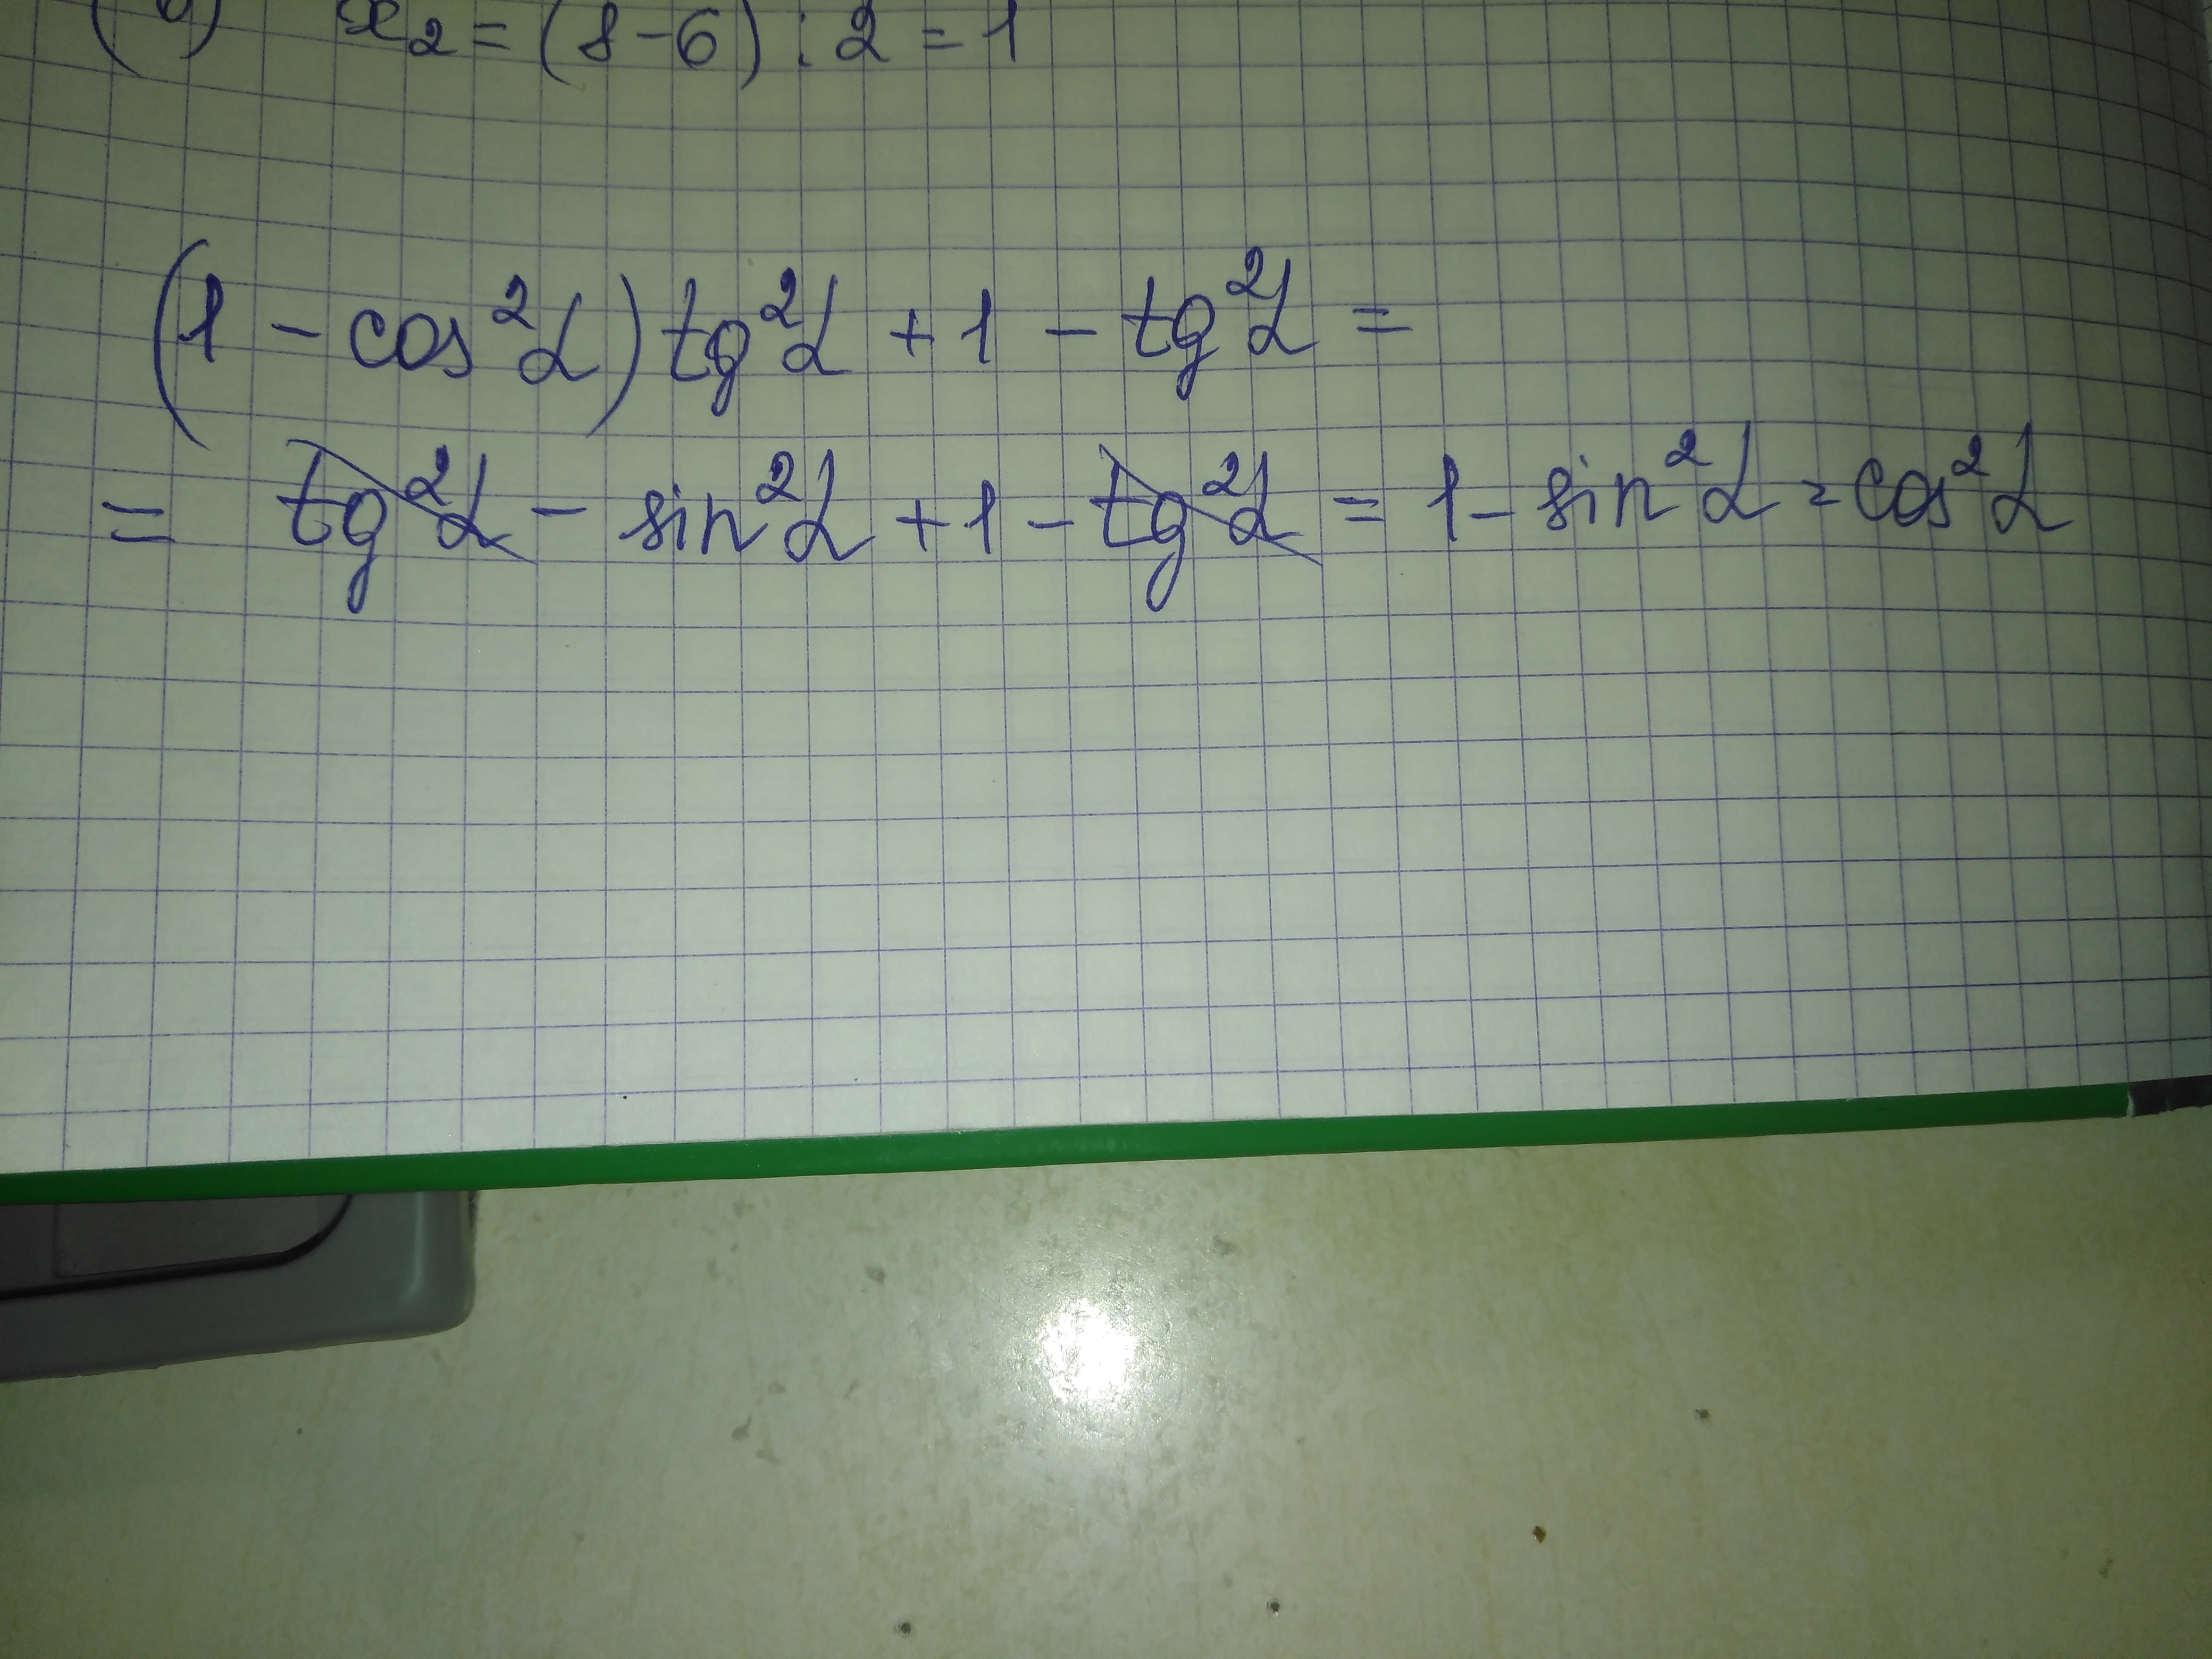 x₂ = (8 - 6) : 2 = 1
(1 - cos²α) tg²α + 1 - tg²α =
= tg²α - sin²α + 1 - tg²α = 1 - sin²α = cos²α